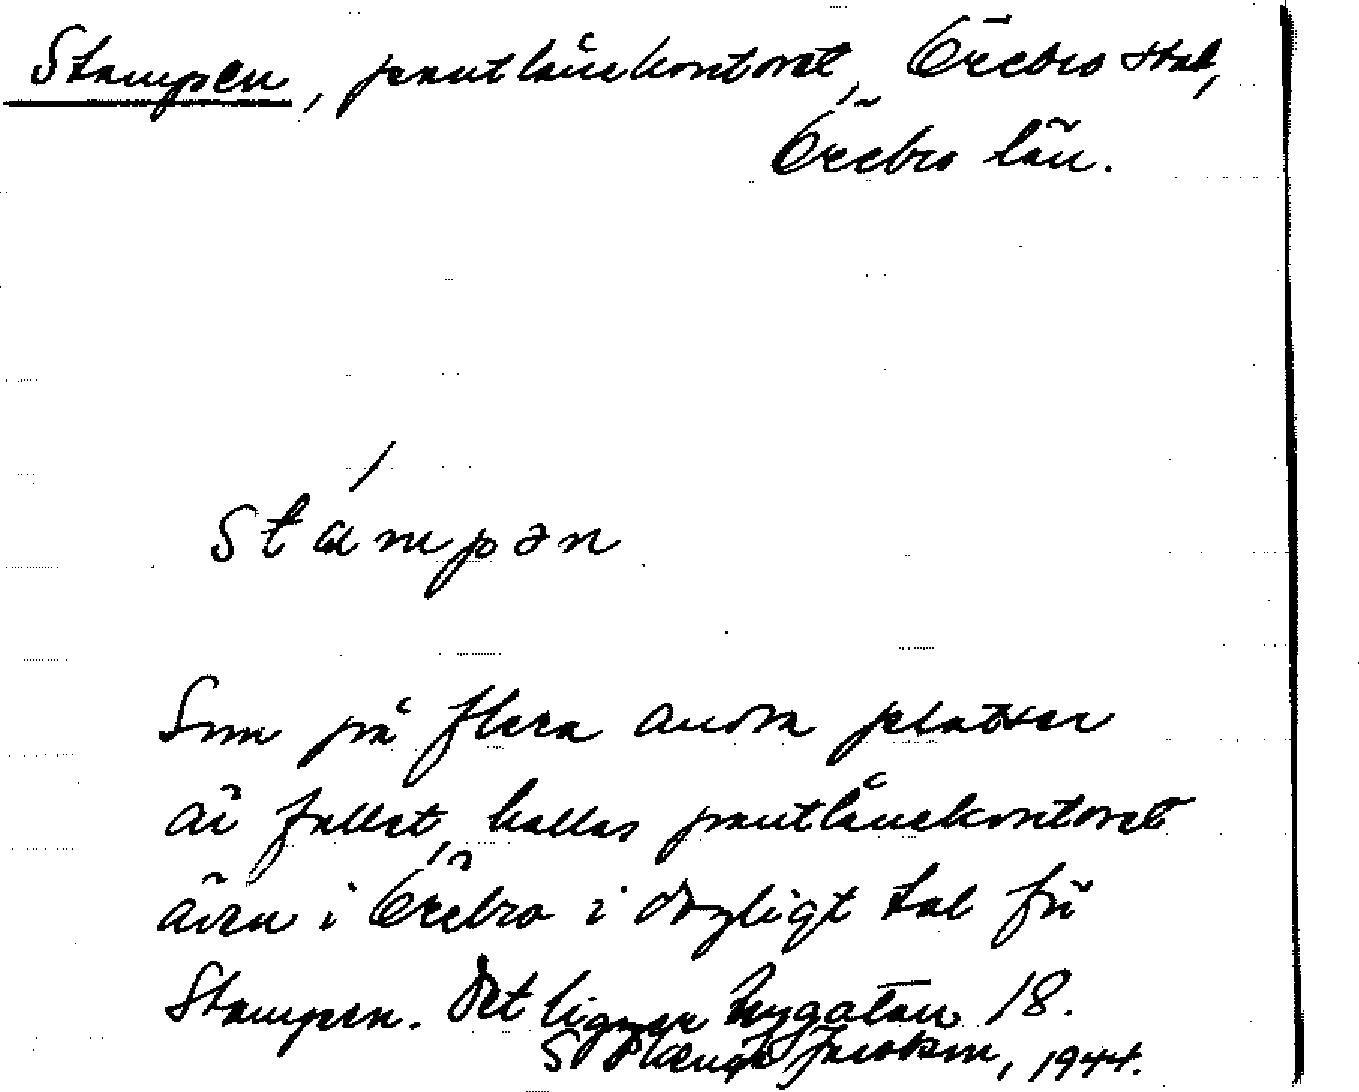 Stampen, pantlånekontoret, Örebro stad,
Örebro län.
Stámpən
Som på flera andra platser
är fallet, kallas pantlånekontoret
även i Örebro i dagligt tal för
Stampen. Det ligger Nygatan 18.
S Jacobson, 1944.